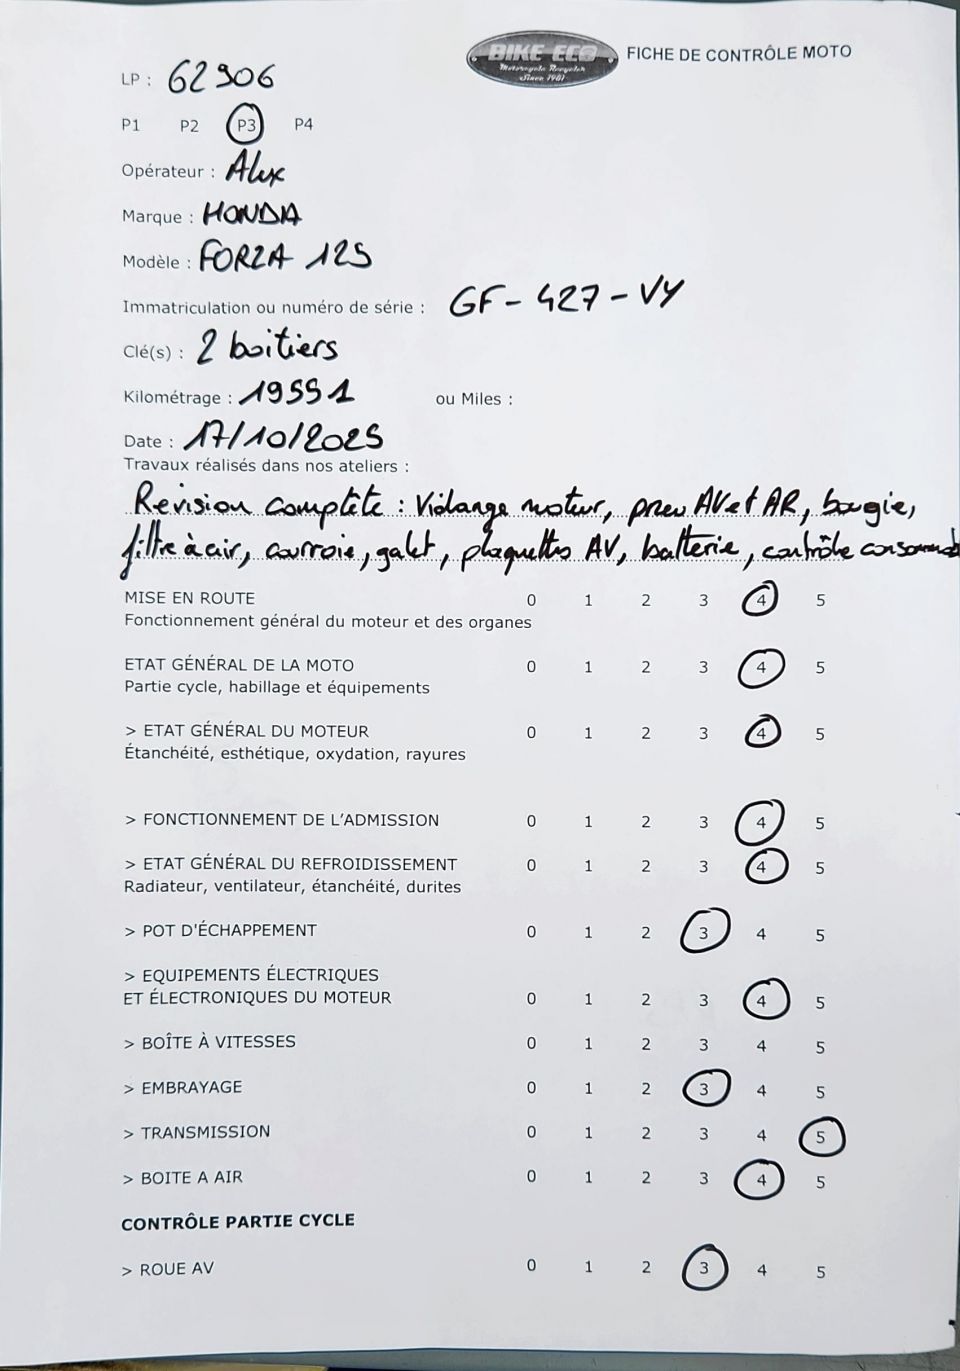 BIKE ECO
Motorcycle Recycler
Since 1981
FICHE DE CONTRÔLE MOTO
LP : 62906
P1 P2 P3 P4
Opérateur : Alex
Marque : HONDA
Modèle : FORZA 125
Immatriculation ou numéro de série : GF-427-VY
Clé(s) : 2 boitiers
Kilométrage : 19551 ou Miles :
Date : 17/10/2025
Travaux réalisés dans nos ateliers :
Révision complète : Vidange moteur, pneu AV et AR, bougie,
filtre à air, courroie, galet, plaquettes AV, batterie, contrôle consommab
MISE EN ROUTE 0 1 2 3 4 5
Fonctionnement général du moteur et des organes
ETAT GÉNÉRAL DE LA MOTO 0 1 2 3 4 5
Partie cycle, habillage et équipements
> ETAT GÉNÉRAL DU MOTEUR 0 1 2 3 4 5
Étanchéité, esthétique, oxydation, rayures
> FONCTIONNEMENT DE L'ADMISSION 0 1 2 3 4 5
> ETAT GÉNÉRAL DU REFROIDISSEMENT 0 1 2 3 4 5
Radiateur, ventilateur, étanchéité, durites
> POT D'ÉCHAPPEMENT 0 1 2 3 4 5
> EQUIPEMENTS ÉLECTRIQUES
ET ÉLECTRONIQUES DU MOTEUR 0 1 2 3 4 5
> BOÎTE À VITESSES 0 1 2 3 4 5
> EMBRAYAGE 0 1 2 3 4 5
> TRANSMISSION 0 1 2 3 4 5
> BOITE A AIR 0 1 2 3 4 5
CONTRÔLE PARTIE CYCLE
> ROUE AV 0 1 2 3 4 5